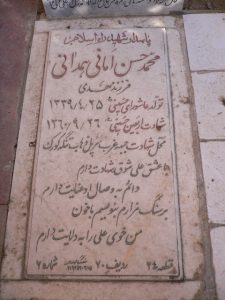 پاسدار شهید راه اسلام
محمد حسن امانی همدانی
فرزند مهدی
تولد عاشورای حسینی ۱۳۳۹/۴/۲۵
شهادت اربعین حسینی ۱۳۶۰/۹/۲۶
محل شهادت جبهه غرب سرپل ذهاب تنگه کورک
من عشق علی شوق شهادت دارم
دائم به وصال او عنایت دارم
بر سنگ مزارم بنویسیم با خون
من خوی علی را به دلایت دارم
قطعه ۲۴ ردیف ۷۰ شماره ۲